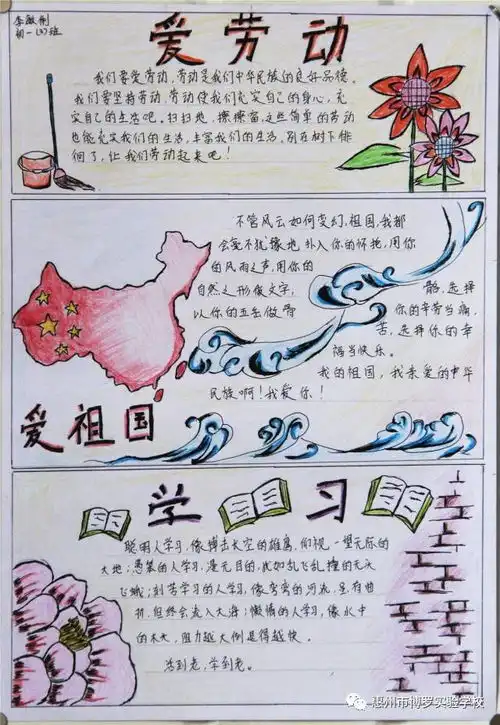 初一(3)班
爱劳动
我们要爱劳动,劳动是我们中华民族的良好品德。
我们要坚持劳动,劳动使我们充实自己的身心,充
实自己的生活吧。扫扫地,擦擦窗,这些简单的劳动
也能充实我们的生活,丰富我们的生活。别在树下徘
徊了,让我们劳动起来吧!
不管风云如何变幻,祖国,我都
会毫不犹豫地扑入你的怀抱,用你
的风雨之声,用你的
自然之形做文字,
以你的五岳做骨
骼,选择
你的辛劳当痛
苦,选择你的幸
福当快乐。
我的祖国,我亲爱的中华
民族啊!我爱你!
爱祖国
学习
聪明人学习,像搏击长空的雄鹰,们视一望无际的
大地;愚笨的人学习,漫无目的,犹如乱飞乱撞的无头
飞蛾;刻苦学习的人学习,像弯弯的河流,虽有曲
折,但终会流入大海;懒惰的人学习,像水中
的木头,阻力越大倒是得越快。
活到老,学到老。
惠州市博罗实验学校